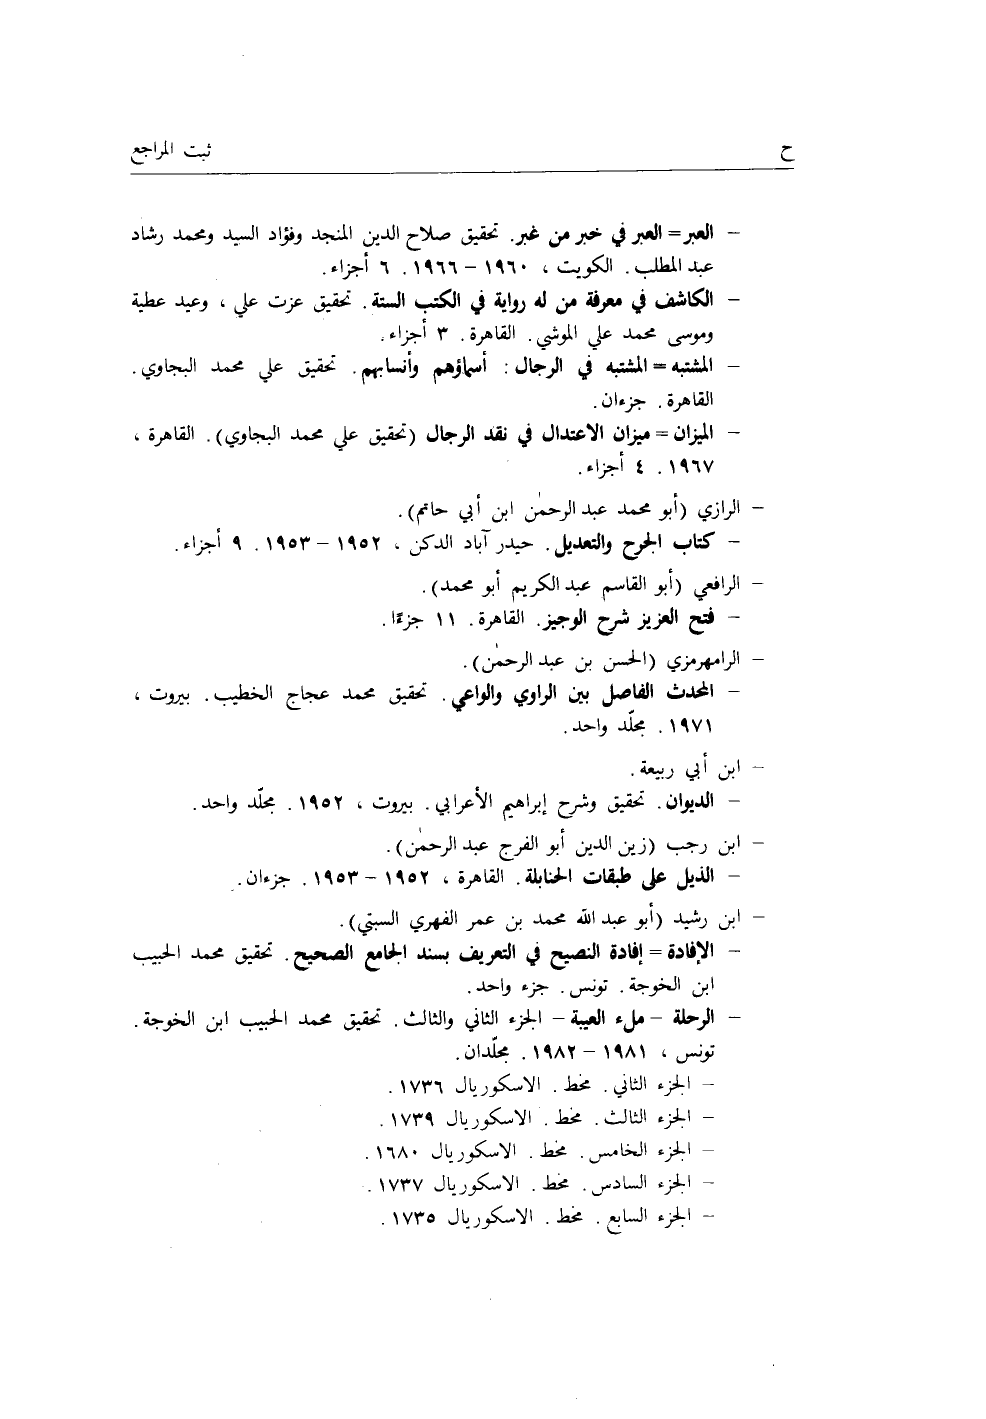 ح
ثبت المراجع
– العبر = العبر في خبر من غبر. تحقيق صلاح الدين المنجد وفؤاد السيد ومحمد رشاد
عبد المطلب. الكويت ، ١٩٦٠ – ١٩٦٦. ٦ أجزاء.
– الكاشف في معرفة من له رواية في الكتب الستة. تحقيق عزت علي ، وعيد عطية
وموسى محمد علي الموشي. القاهرة. ٣ أجزاء.
– المشتبه = المشتبه في الرجال : أسماؤهم وأنسابهم. تحقيق علي محمد البجاوي.
القاهرة. جزءان.
– الميزان = ميزان الاعتدال في نقد الرجال (تحقيق علي محمد البجاوي). القاهرة ،
١٩٦٧. ٤ أجزاء.
– الرازي (أبو محمد عبد الرحمٰن ابن أبي حاتم).
– كتاب الجرح والتعديل. حيدر آباد الدكن ، ١٩٥٢ – ١٩٥٣. ٩ أجزاء.
– الرافعي (أبو القاسم عبد الكريم أبو محمد).
– فتح العزيز شرح الوجيز. القاهرة. ١١ جزءًا.
– الرامهرمزي (الحسن بن عبد الرحمٰن).
– المحدث الفاصل بين الراوي والواعي. تحقيق محمد عجاج الخطيب. بيروت ،
١٩٧١. مجلّد واحد.
– ابن أبي ربيعة.
– الديوان. تحقيق وشرح إبراهيم الأعرابي. بيروت ، ١٩٥٢. مجلّد واحد.
– ابن رجب (زين الدين أبو الفرج عبد الرحمٰن).
– الذيل على طبقات الحنابلة. القاهرة ، ١٩٥٢ – ١٩٥٣. جزءان.
– ابن رشيد (أبو عبد الله محمد بن عمر الفهري السبتي).
– الإفادة = إفادة النصيح في التعريف بسند الجامع الصحيح. تحقيق محمد الحبيب
ابن الخوجة. تونس. جزء واحد.
– الرحلة – ملء العيبة – الجزء الثاني والثالث. تحقيق محمد الحبيب ابن الخوجة.
تونس ، ١٩٨١ – ١٩٨٢. مجلّدان.
– الجزء الثاني. مخط. الاسكوريال ١٧٣٦.
– الجزء الثالث. مخط. الاسكوريال ١٧٣٩.
– الجزء الخامس. مخط. الاسكوريال ١٦٨٠.
– الجزء السادس. مخط. الاسكوريال ١٧٣٧.
– الجزء السابع. مخط. الاسكوريال ١٧٣٥.